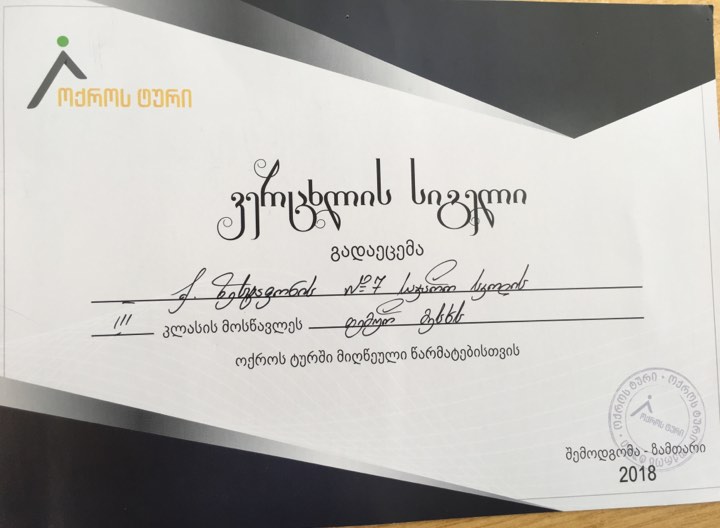 ოქროს ტური
ვერცხლის სიგელი
გადაეცემა
ქ. ზესტაფონის №7 საჯარო სკოლის
III კლასის მოსწავლეს
ოქროს ტურში მიღწეული წარმატებისთვის
ოქროს ტური • ოქროს ტური
ოქროს ტური
შემოდგომა - ზამთარი
2018